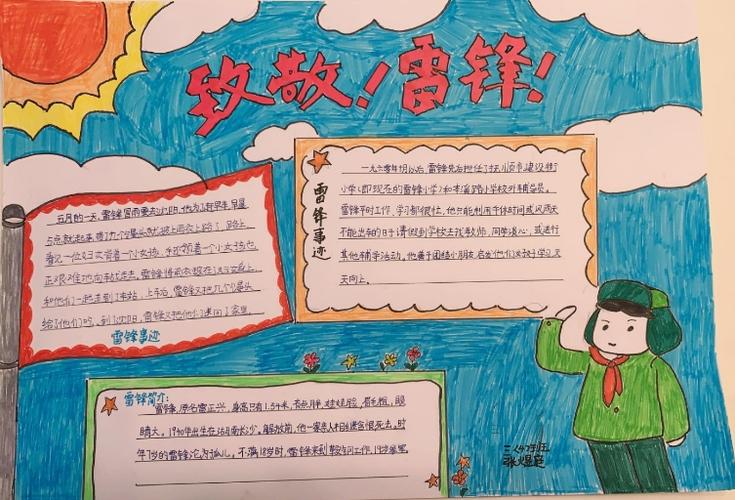 致敬！雷锋！
五月的一天，雷锋冒雨要去沈阳，他为了赶早车，早晨
5点就起来，带了几个馒头就披上雨衣上路了，路上，
看见一位妇女背着一个小女孩，手还领着一个小女孩也
正艰难地向车站走去。雷锋脱下雨衣披在妇女身上，
和他们一起走到车站，上车后，雷锋又把几个馒头
给了他们吃，到了沈阳，雷锋又把他们送回了家里。
雷锋事迹
雷锋事迹
一九六零年10月以后，雷锋先后担任了抚顺市建设街
小学(即现在的雷锋小学)和本溪路小学校外辅导员。
雷锋平时工作、学习都很忙，他只能利用午休时间或风雨天
不能出车的日子请假到学校去找教师、同学谈心，或进行
其他辅导活动。他善于团结小朋友，启发他们好好学习天
天向上。
雷锋简介：
雷锋，原名雷正兴，身高只有1.54米，有点胖，娃娃脸，眉毛粗，眼
睛大。1940年出生在湖南长沙。解放前，他一家亲人相继含恨死去，时
年7岁的雷锋沦为孤儿。不满18岁时，雷锋来到鞍钢工作，19岁
三(4)班
张煜莛